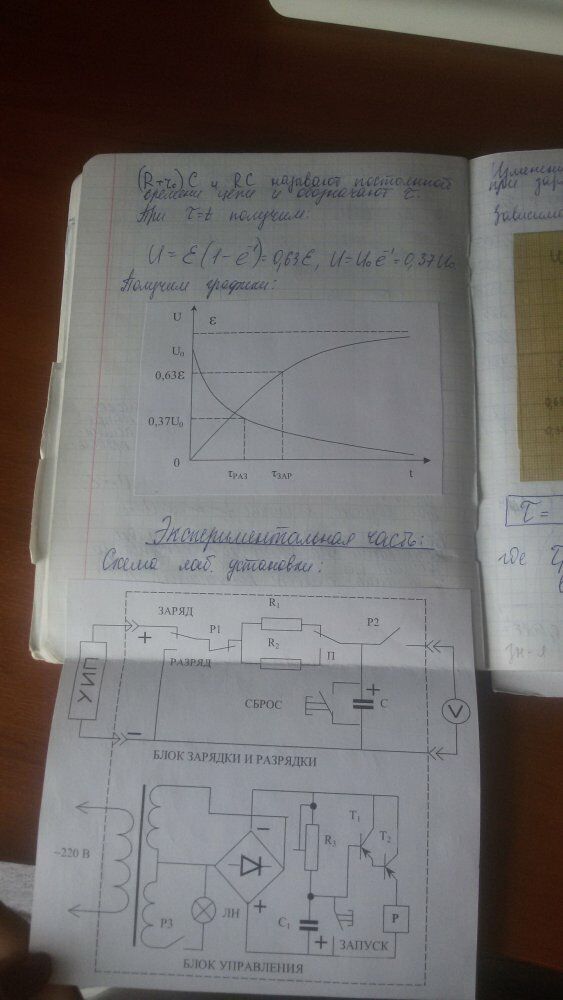 (R+r₀)C и RC называют постоянной
времени цепи и обозначают τ.
При τ=t получим:
U = ε(1-e⁻¹)=0,63ε, U=U₀e⁻¹=0,37U₀
Получим графики:
U
ε
U₀
0,63ε
0,37U₀
0
τРАЗ
τЗАР
t
Экспериментальная часть:
Схема лаб. установки:
ЗАРЯД
R₁
P1
P2
+
R₂
РАЗРЯД
П
ИИП
СБРОС
+
C
V
–
БЛОК ЗАРЯДКИ И РАЗРЯДКИ
~220 В
–
R₃
T₁
T₂
+
P3
ЛН
C₁
+
ЗАПУСК
P
БЛОК УПРАВЛЕНИЯ
Изменени
при зар
Зависимо
U
τ =
где